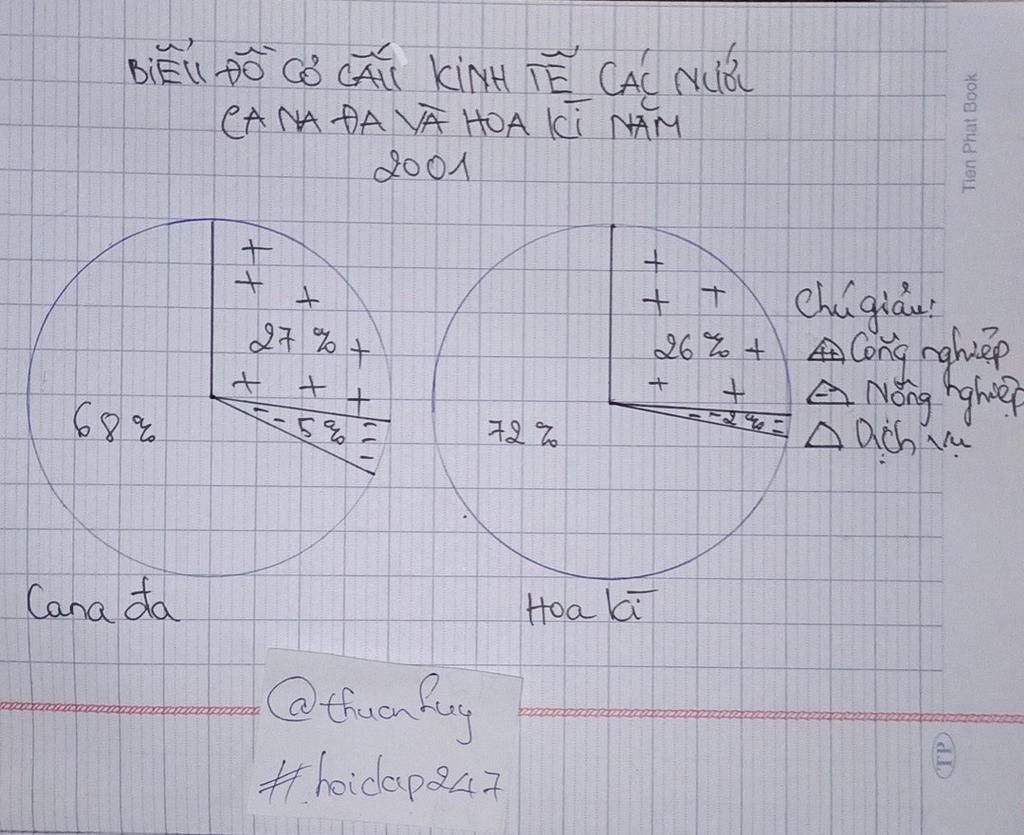 BIỂU ĐỒ CƠ CẤU KINH TẾ CÁC NƯỚC
CA NA ĐA VÀ HOA KÌ NĂM
2001
27 %
5 %
68 %
26 %
2 %
72 %
Chú giải:
Công nghiệp
Nông nghiệp
Dịch vụ
Cana đa
Hoa kì
@thuanhuy
#hoidap247
Tien Phat Book
TP